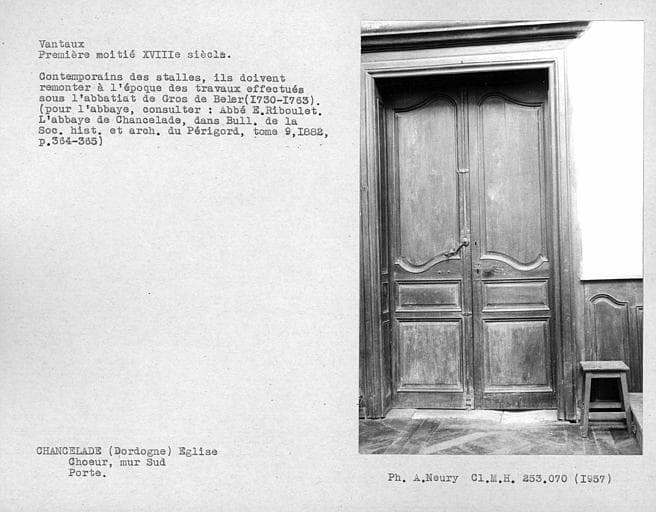 Vantaux
Première moitié XVIIIe siècle.
Contemporains des stalles, ils doivent
remonter à l'époque des travaux effectués
sous l'abbatiat de Gros de Beler(I730-I763).
(pour l'abbaye, consulter : Abbé E.Riboulet.
L'abbaye de Chancelade, dans Bull. de la
Soc. hist. et arch. du Périgord, tome 9,I882,
p.364-365)
CHANCELADE (Dordogne) Eglise
Choeur, mur Sud
Porte.
Ph. A.Neury Cl.M.H. 253.070 (I957)